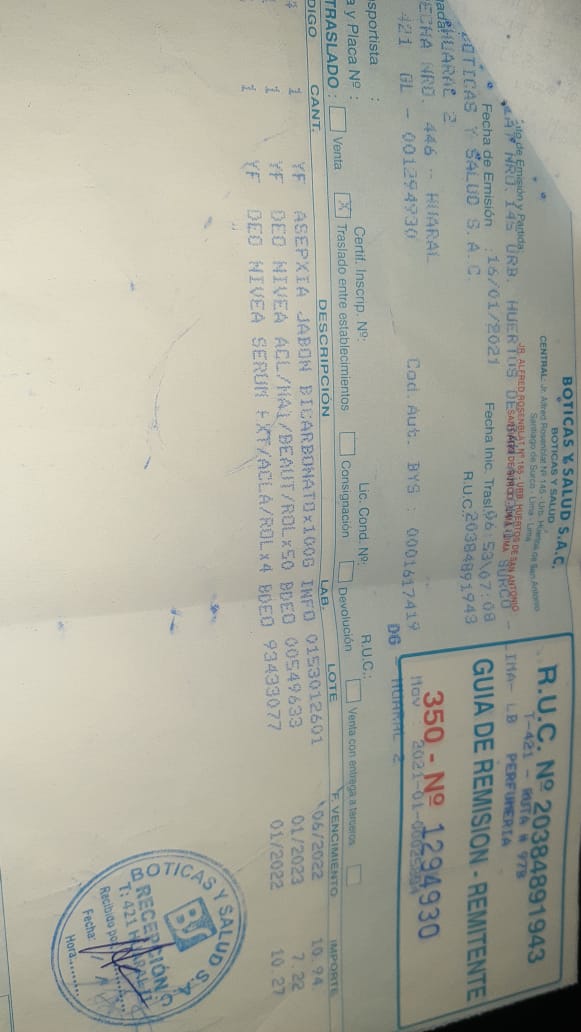 BOTICAS Y SALUD S.A.C.
BOTICAS Y SALUD
CENTRAL: Jr. Alfred Rosenblat Nº 145 - Urb. Huertos de San Antonio
Santiago de Surco - Lima - Lima
JR. ALFRED ROSENBLAT Nº 165 - URB. HUERTOS DE SAN ANTONIO
R.U.C. Nº 20384891943
T-421 - RUTA # 978
GUIA DE REMISION - REMITENTE
350 - Nº 1294930
to de Emisión y Partida
LAT NRO. 145 URB. HUERTOS DE SURCO - LIMA- LB PERFUMERIA
Fecha de Emisión : 16/01/2021 Fecha Inic. Tras. 06:53\07:08
BOTICAS Y SALUD S.A.C. R.U.C. 20384891943
HUARAL 2
ECHA NRO. 446 - HUARAL
421 GL - 001294930 Cod. Aut. BYS : 0001617419 DG - HUARAL 2
nsportista :
a y Placa Nº : Certif. Inscrip. Nº: Lic. Cond. Nº: R.U.C.:
TRASLADO : Venta X Traslado entre establecimientos Consignación Devolución Venta con entrega a terceros
DIGO CANT. DESCRIPCIÓN LAB. LOTE F. VENCIMIENTO IMPORTE
1 YF ASEPXIA JABON BICARBONATOx100G INFO 0153012601 06/2022 10.94
1 YF DEO NIVEA ACL/MA1/BEAUT/ROLx50 BDEO 00549633 01/2023 7.22
1 YF DEO NIVEA SERUM EXT/ACLA/ROLx4 BDEO 93433077 01/2022 10.27
BOTICAS Y SALUD S.A.
BS
RECEPCIÓN
T: 421 HUARAL
Recibido por
Fecha:
Hora: